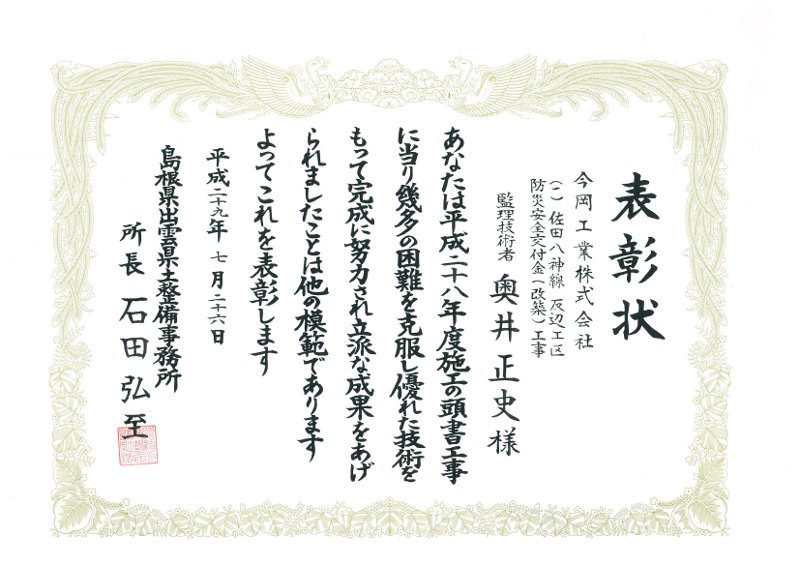 表彰状
今岡工業株式会社
(一)佐田八神線 反辺工区
防災安全交付金(改築)工事
監理技術者 奥井正史様
あなたは平成二十八年度施工の頭書工事
に当り幾多の困難を克服し優れた技術を
もって完成に努力され立派な成果をあげ
られましたことは他の模範であります
よってこれを表彰します
平成二十九年 七月 二十六日
島根県出雲県土整備事務所
所長 石田弘至